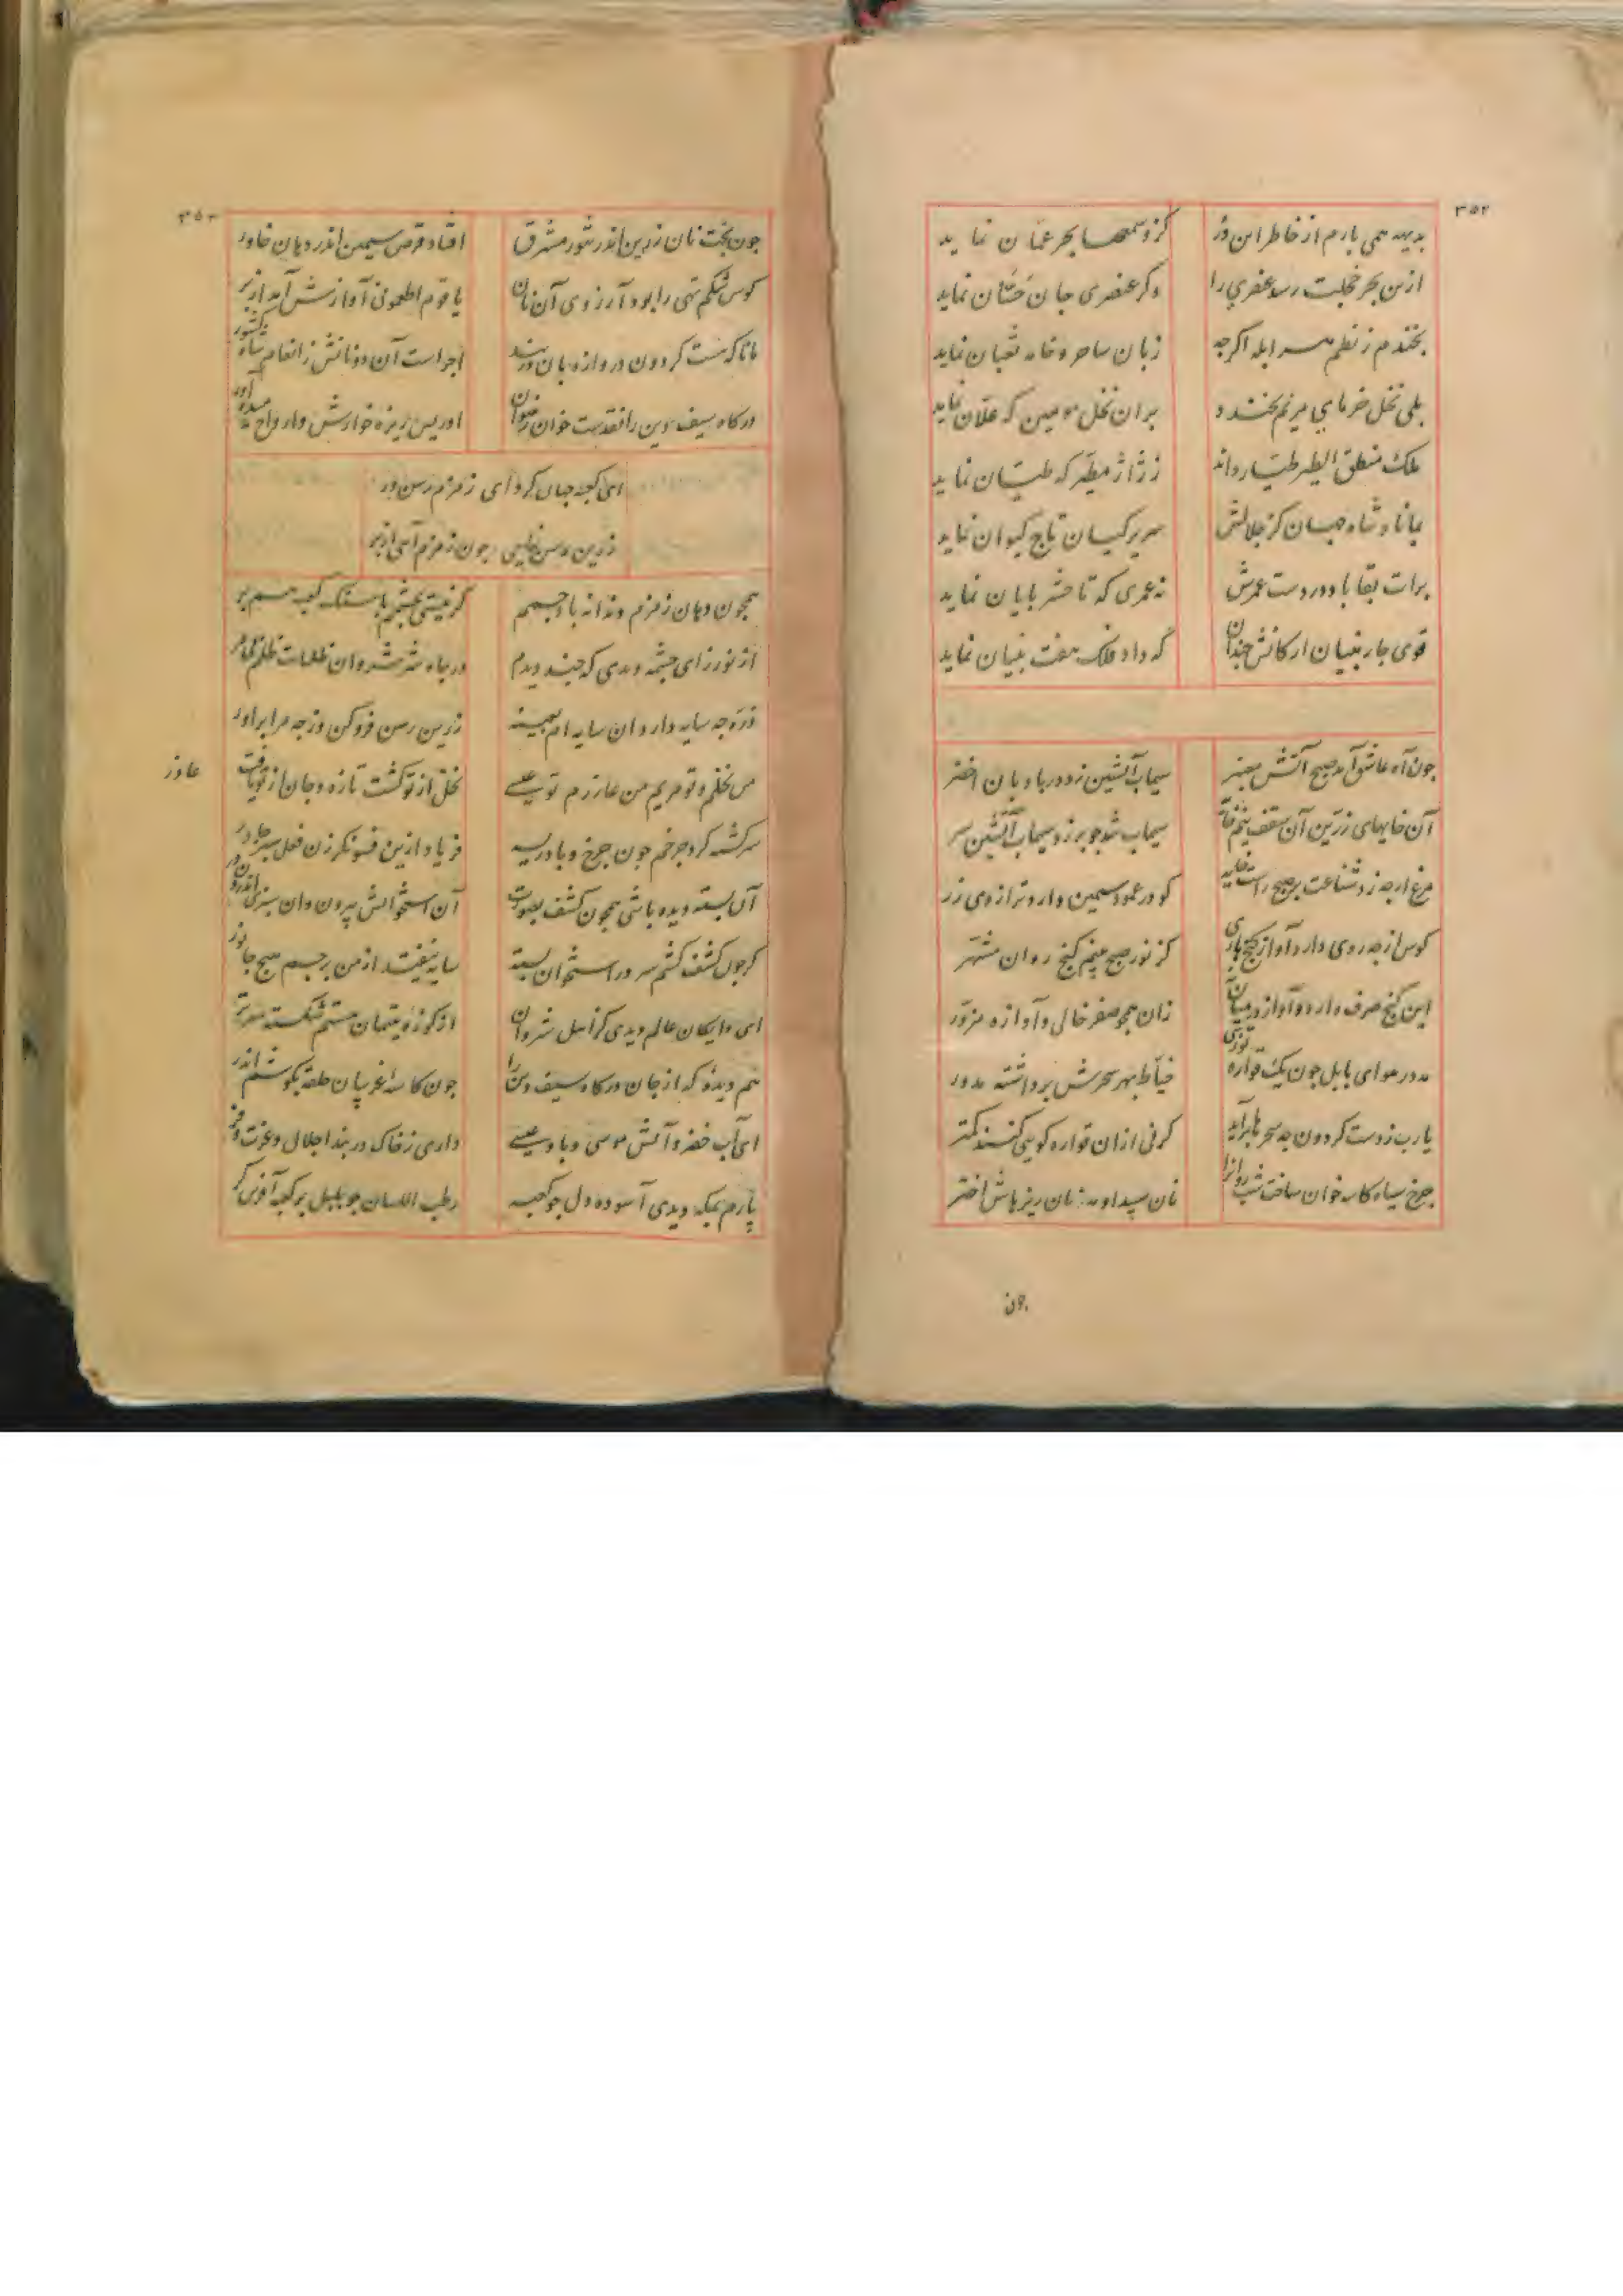 ۳۵۲
بدیهه همی بارم از خاطر این در کزو سمعها بحر عمان نماید
ازین بحر خجلت رسد عنصری را وکر عنصری جان حسّان نماید
بخندم ز نظم هر ابله اکرچه زبان ساحر و خامه ثعبان نماید
بلی نخل خرمای مریم بخندد بران نخل مومین که علان نماید
ملک منطق الطیر طیّار داند ز ژاژ مطیّر که طیّان نماید
بماناد شاه جهان کز جلالش سریر کیان تاج کیوان نماید
برات بقا باد در دست عمرش نه عمری که تا حشر پایان نماید
قوی چار بنیان ارکانش چندان که داد فلک هفت بنیان نماید
جون آه عاشق آمد صبح آتش معنبر سیماب آتشین زد در بادبان اخضر
آن خایهای زرّین آن سقف نیم خانه سیماب شد جو برزد سیماب آتشین سر
مرغ ارچه زد شناعت بر صبح راست خانه کو در عمود سیمین دارد ترازوی زر
کوس از چه روی دارد آواز کنج باری کز نور صبح بینم کنج روان مشتهر
این کنج صرف دارد و آواز در میان نی زان همچو صفر خالی و آوازه مزوّر
در هوای بابل جون یک قواره توزی خیّاط بهر سحرش برداشته مدور
یارب ز دست کردون چه سحرها برآید کرنی ازان قواره کویی کنند کمتر
جرخ سیاه کاسه خوان ساخت شب روانرا نان سپید او مه نان ریزهاش اختر
جون
۳۵۳
جون بخت نان زرین اندر تنور مشرق افتاد قرص سیمین اندر دهان خاور
کوس شکم تهی را بود آرزوی آن نان یا قوم اطعمونی آوازش آمد از بر
مانا که هست کردون دروازه بان دربند اجراست آن دو نانش ز انعام شاه کشور
درکاه سیف دین را نقدست خوان رضوان ادریس ریزه خوارش و ارواح میده آور
ای کعبه جهان کرد ای زمزم رسن ور
زرین رسن نمایی جون زمزم آیی از بر
همچون دهان زمزم دندانه باد چشمم کر نیستی بچشم با سنک کعبه همبر
از نورزای چشمه دیدی که چند دیدم در چاه شر شروان ظلمات ظلم ظاهر
ذرّه چه سایه دارد آن سایه ام بعینه زرین رسن فروکن وز چه مرا براور
من نخلم و تو مریم من عازرم تو عیسی نخل از تو کشت تازه و جان از تو یافت عازر
سرکشته کرد چرخم جون جرخ و بادریسه فریاد ازین فسونکر زن فعل سبز چادر
آن بسته دیده باشی همچون کشف بصورت آن استخوانش بیرون وان سبزی اندرون در
کر جون کشف کشم سر در استخوان بسته سایه نیفتد از من بر چشم هیچ جانور
ای دایکان عالم دیدی کز اهل شروان از کوزه یتیمان هستم شکسته سرتر
هم دیدۀ که از جان درکاه سیف دین را جون کاسه غریبان حلقه بکوشم اندر
ای آب خضر و آتش موسی و باد عیسی داری ز خاک دربند اجلال و عزت و فر
پارم بمکه دیدی آسوده دل جو کعبه رطب اللسان جو بلبل بر کعبه آفرین کر
عازر